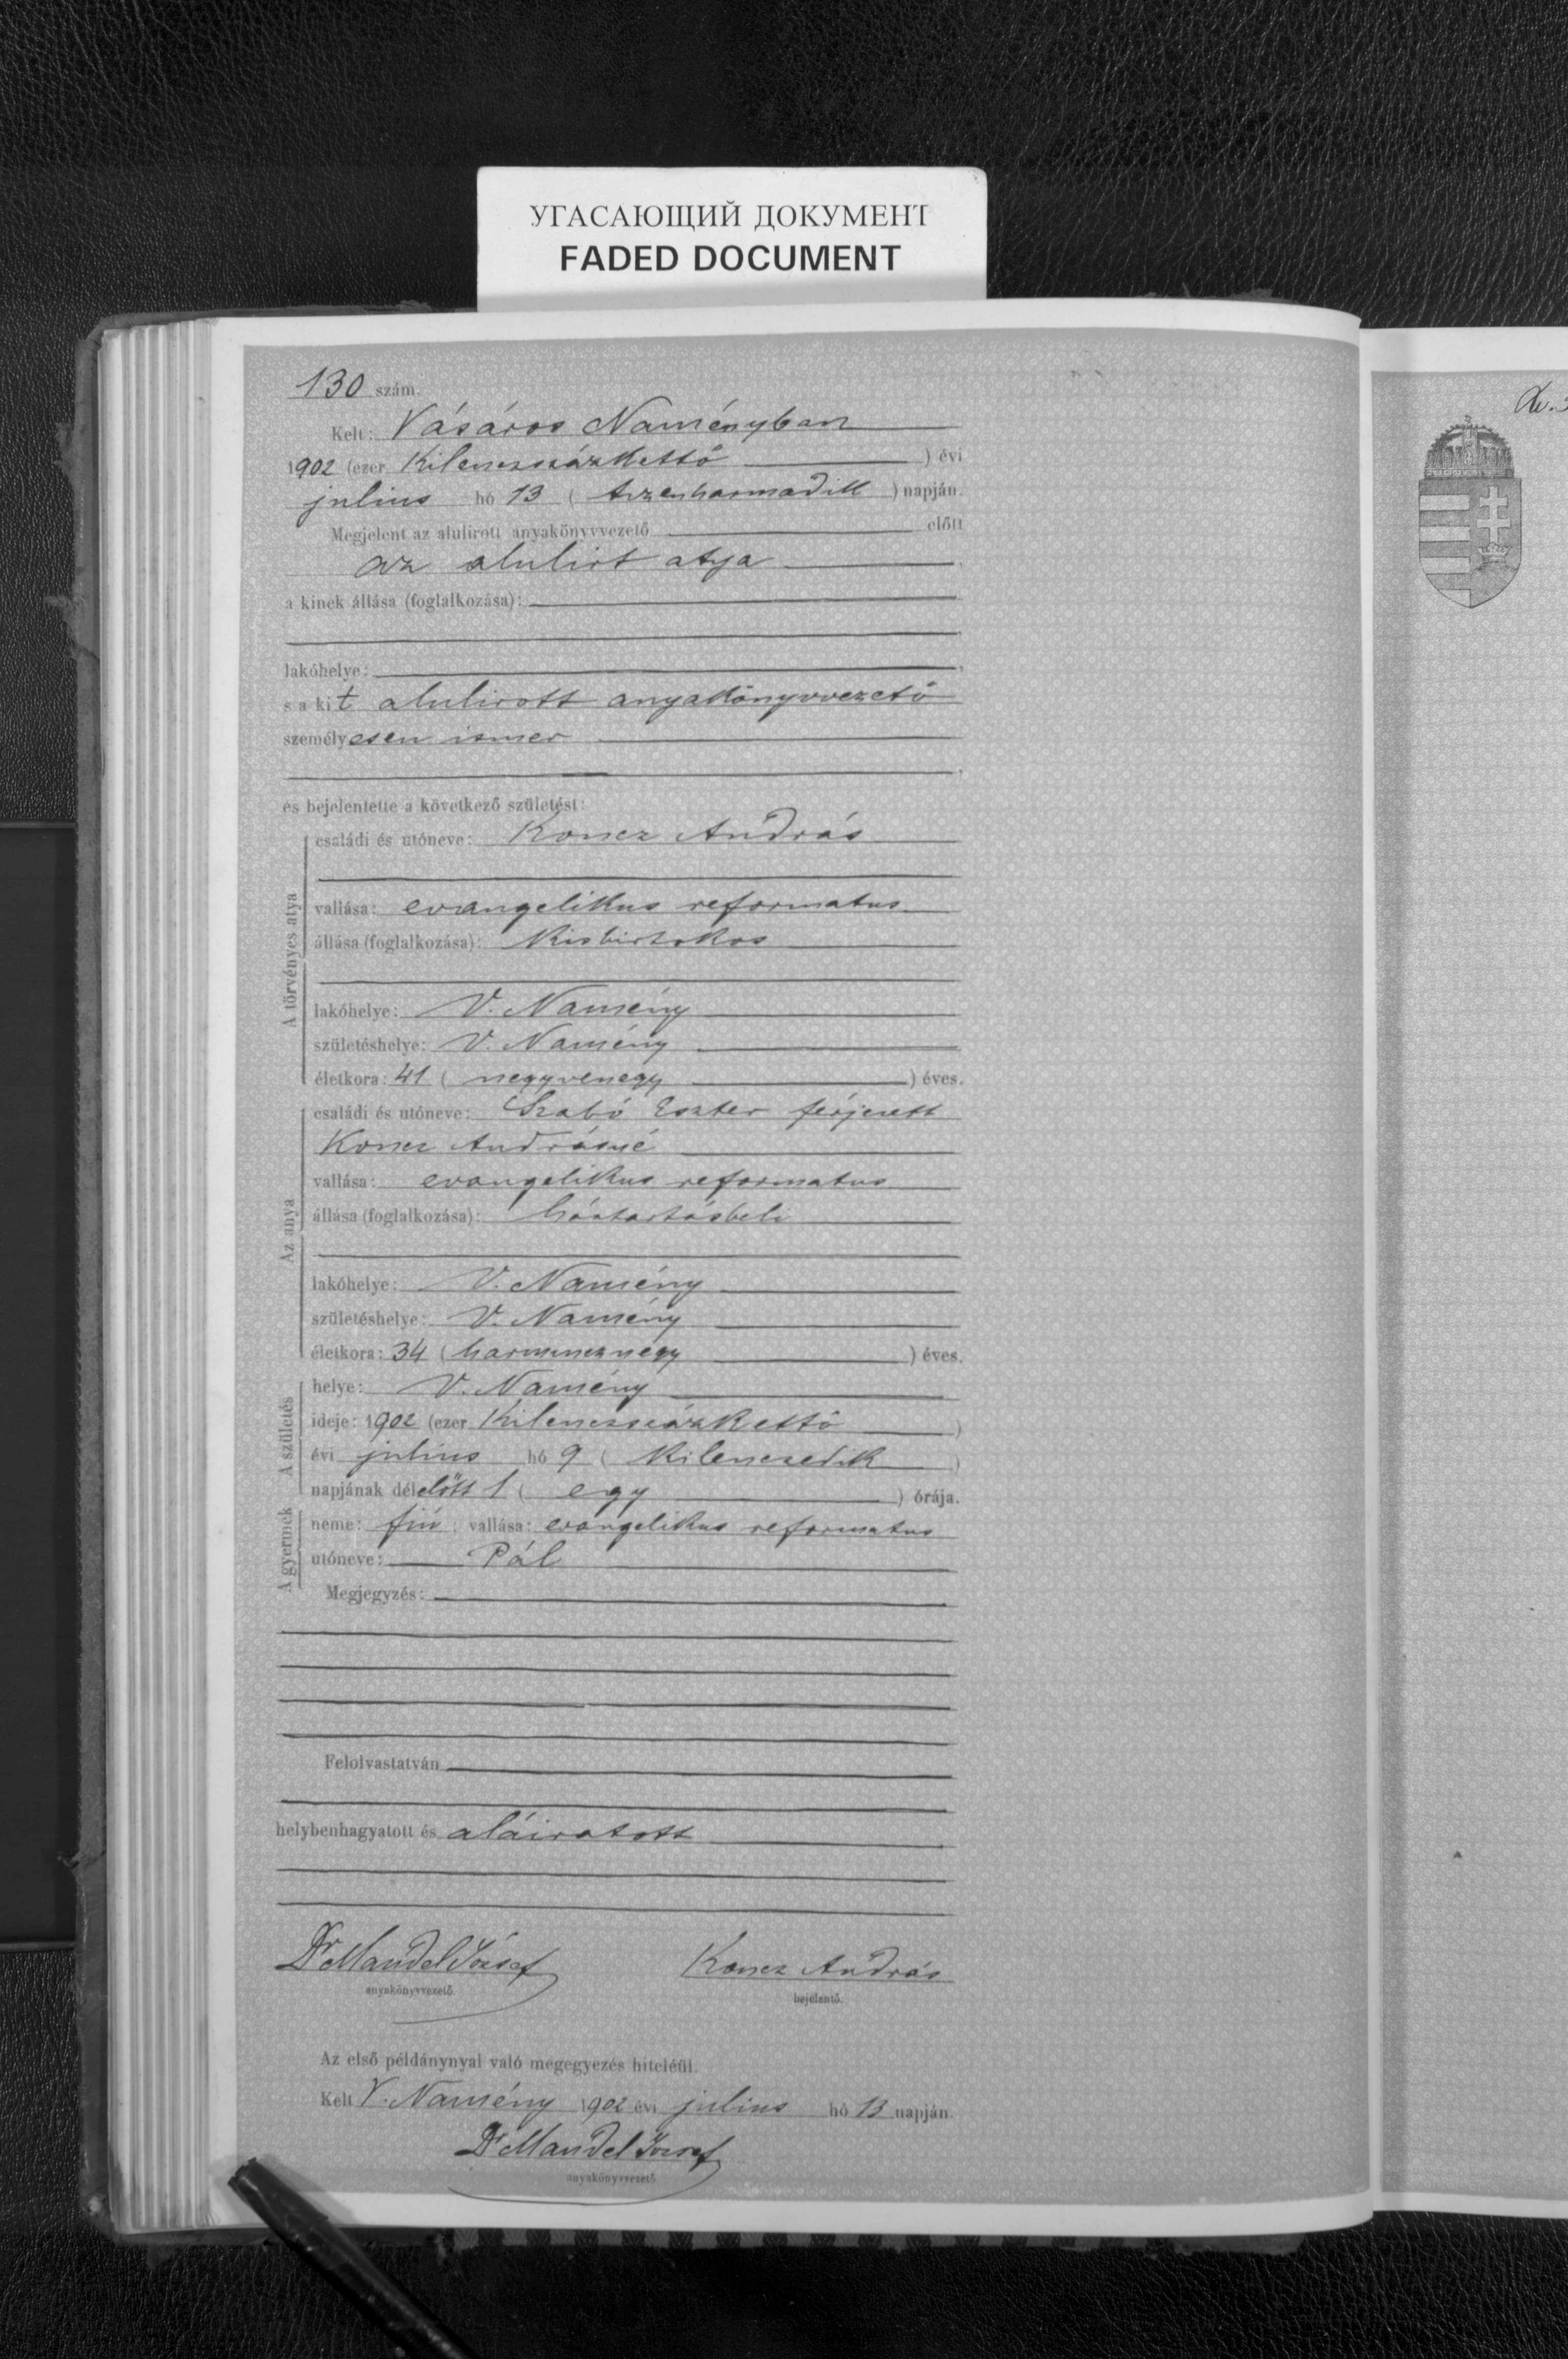 УГАСАЮЩИЙ ДОКУМЕНТ
FADED DOCUMENT
130 szám.
Kelt: Vásáros Naményban
1902 (ezer Kilenczszázkettő ) évi
julius hó 13 ( tizenharmadik ) napján.
Megjelent az alulirott anyakönyvvezető előtt
az alulirt atya
a kinek állása (foglalkozása):
lakóhelye:
s a kit alulirott anyakönyvvezető
személyesen ismer
és bejelentette a következő születést:
A törvényes atya
családi és utóneve: Koncz András
vallása: evangelikus reformatus
állása (foglalkozása): Kisbirtokos
lakóhelye: V. Namény
születéshelye: V. Namény
életkora: 41 ( negyvenegy ) éves.
Az anya
családi és utóneve: Szabó Eszter férjezett
Koncz Andrásné
vallása: evangelikus reformatus
állása (foglalkozása): háztartásbeli
lakóhelye: V. Namény
születéshelye: V. Namény
életkora: 34 ( harmincznégy ) éves.
A születés
helye: V. Namény
ideje: 1902 (ezer Kilenczszázkettő )
évi julius hó 9 ( Kilenczedik )
napjának délelőtt 1 ( egy ) órája.
A gyermek
neme: fiú ; vallása: evangelikus reformatus
utóneve: Pál
Megjegyzés:
Felolvastatván
helybenhagyatott és aláiratott
Dr Mandel József Koncz András
anyakönyvvezető. bejelentő.
Az első példánynyal való megegyezés hiteléül.
Kelt V. Namény 1902 évi julius hó 13 napján.
Dr Mandel József
anyakönyvvezető